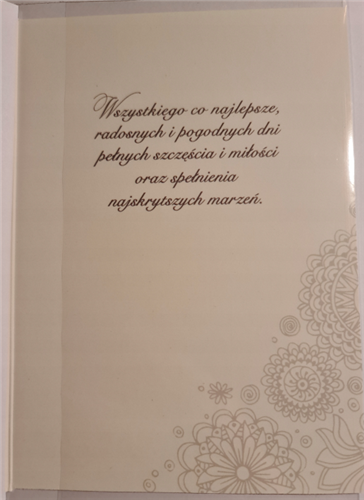 Wszystkiego co najlepsze,
radosnych i pogodnych dni
pełnych szczęścia i miłości
oraz spełnienia
najskrytszych marzeń.